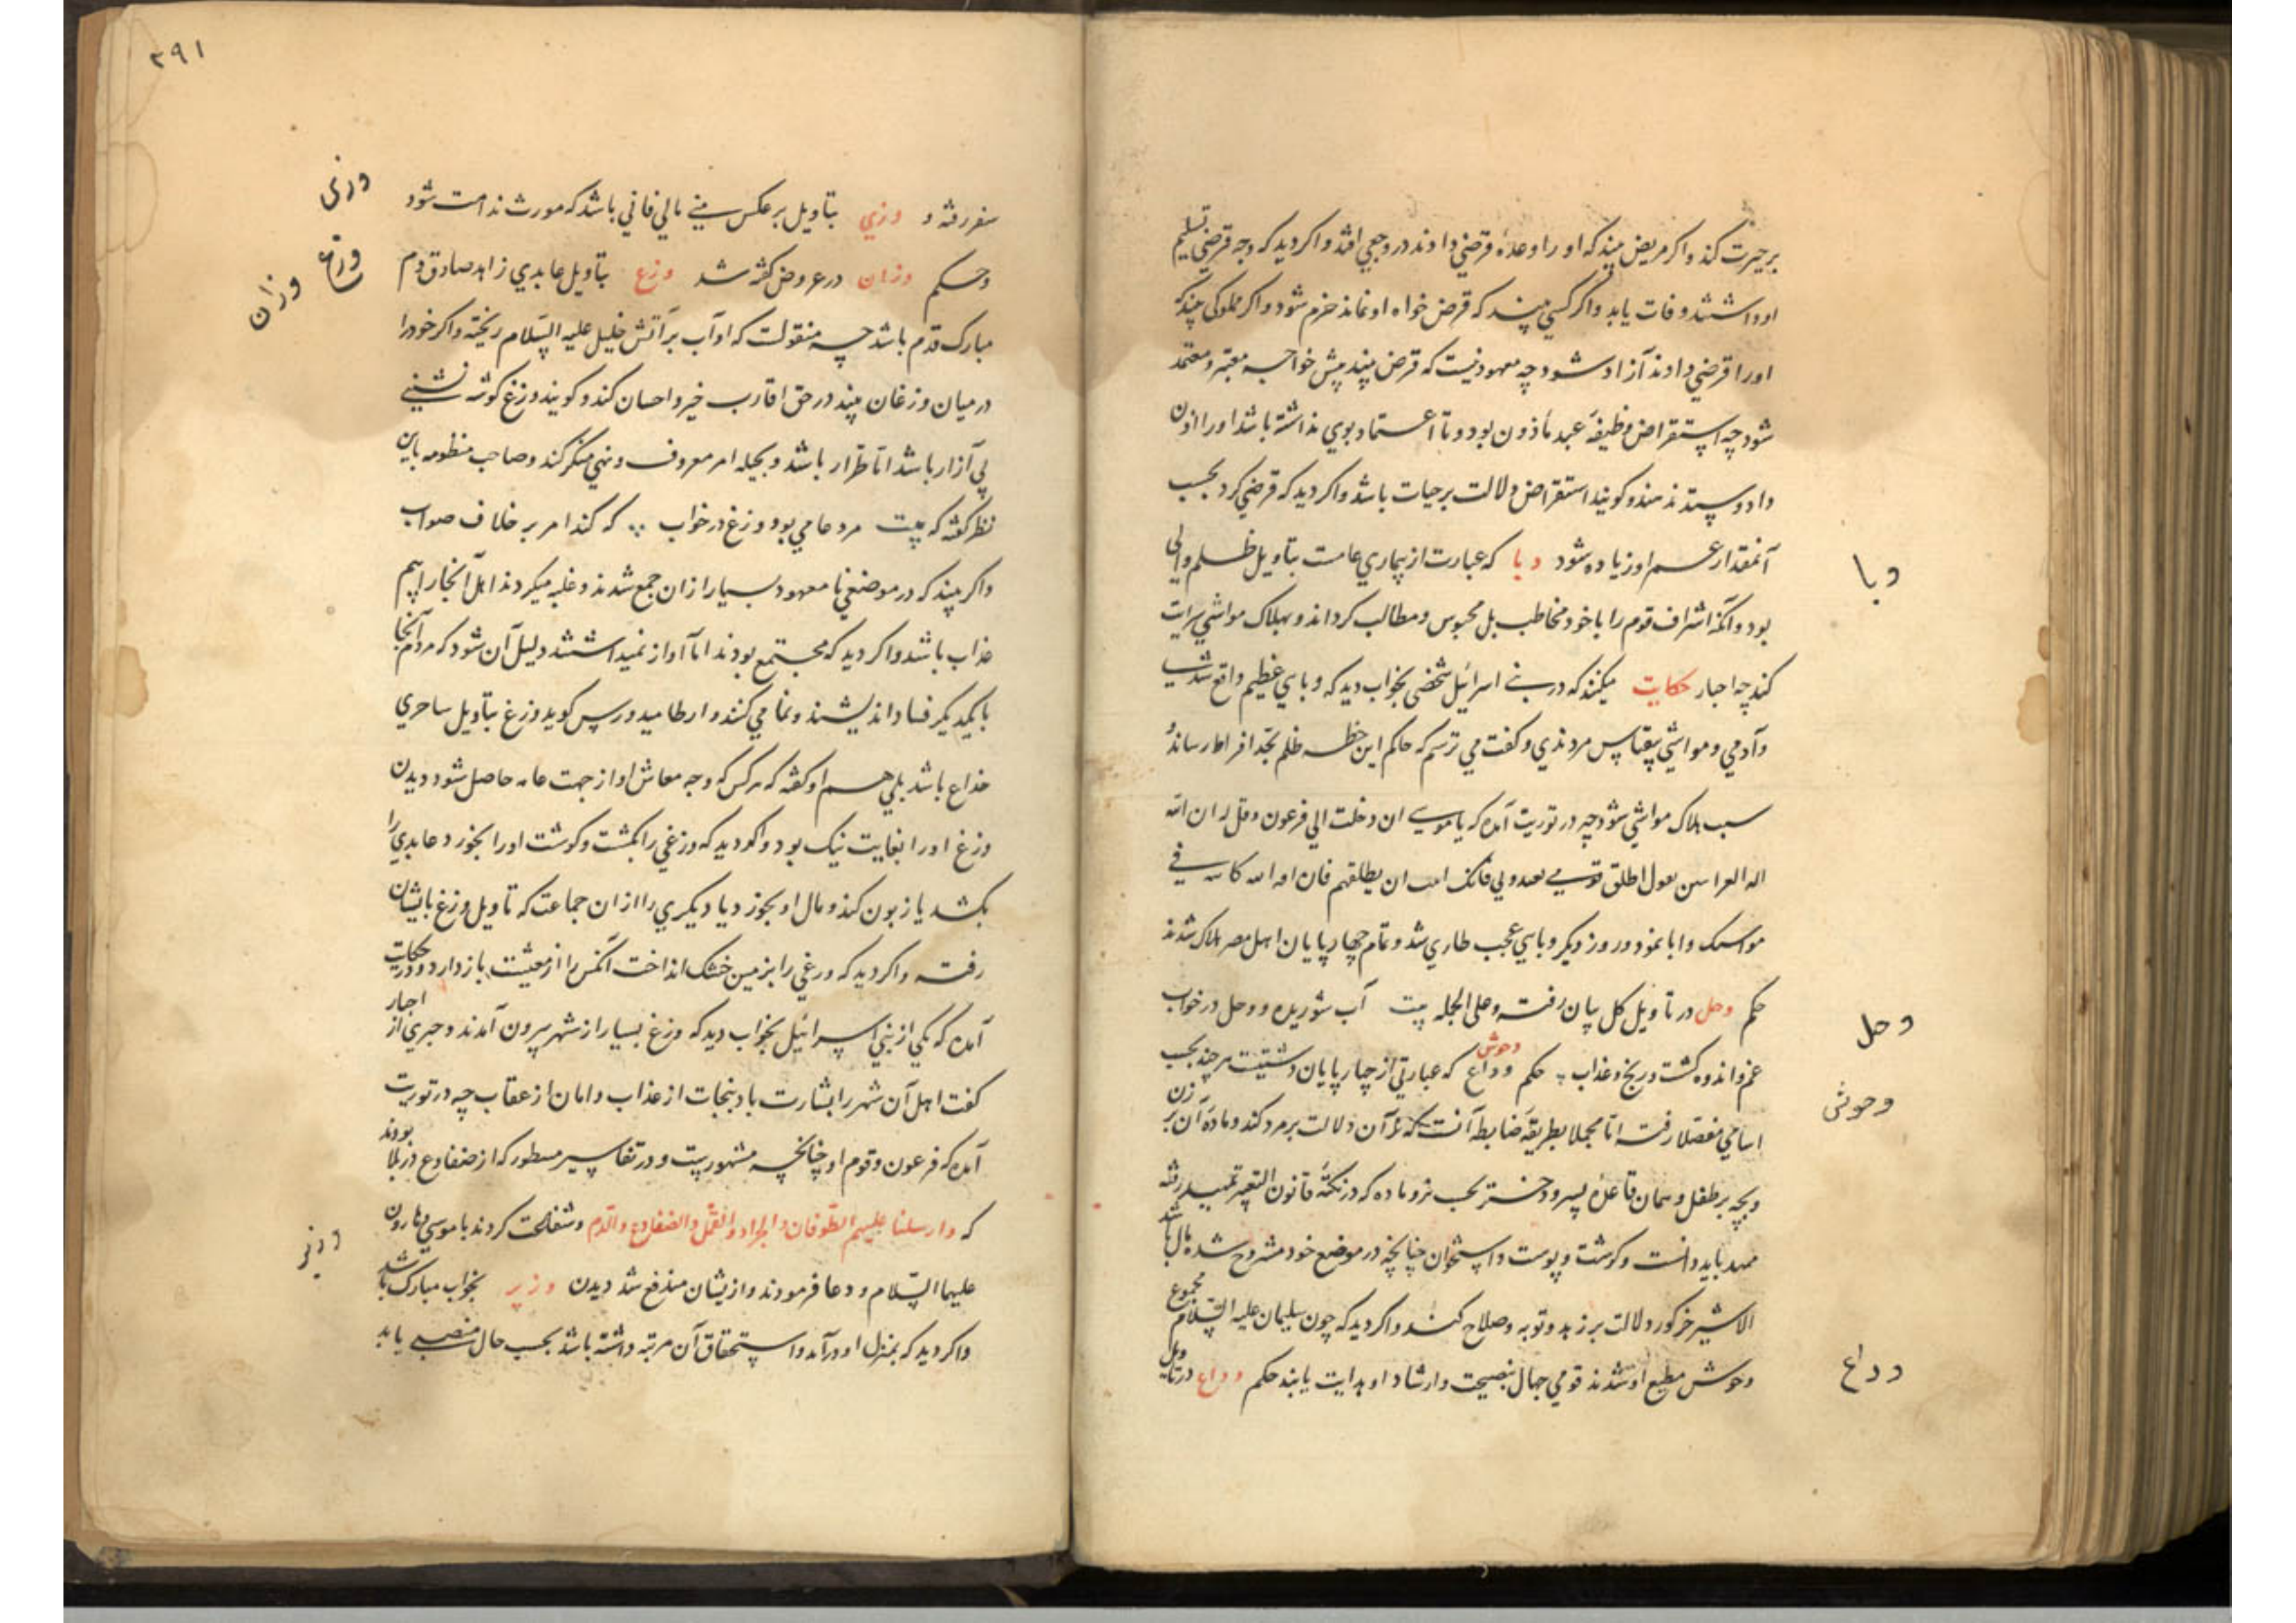 بر حیرت کند و اکر مریض بیند که او را وعدهٔ قرضی دادند در وجعی افتد و اکر دید که وجه قرضی تسلیم
او داشتند وفات یابد و اکر کسی بیند که قرض خواه او نماند خرم شود و اکر مملوکی بیند که
او را قرضی دادند آزاد شود چه معهود نیست که قرض بیند پیش خواجه معتبر و معتمد
شود چه استقراض وظیفهٔ عبد مأذون بود و تا اعتماد بوی نداشته باشد او را اذن
داد و ستد ندهند و کویند استقراض دلالت بر حیات باشد و اکر دید که قرضی کرد بحسب
آنمقدار عمر او زیاده شود وبا که عبارت از بیماری عامست بتاویل ظلم والی
بود و آنکه اشراف قوم را با خود مخاطب بل محبوس و مطالب کرداند و بهلاک مواشی سرایت
کند چه احبار حکایت میکنند که در بنی اسرائیل شخصی بخواب دید که وبای عظیم واقع شد
و آدمی و مواشی بیقیاس مردندی و کفت می ترسم که حاکم این خطه ظلم بحد افراط رساند و
سبب هلاک مواشی شود چه در توریت آمده که یا موسی ان دخلت الی فرعون وقل له ان الله
اله العبرانیین یقول اطلق قومی یعبدونی فانک ان ابیت ان یطلقهم فان
مواشیک و ابا نمود و روز دیکر وبایی عجب طاری شد و تمام چهارپایان اهل مصر هلاک شدند
حکم وحل در تاویل کل بیان رفت و علی الجمله بیت آب شوریده و وحل در خواب
غم و اندوه کشت و رنج و عذاب حکم وحوش وداع که عبارتی از چهارپایان دشتیست هر چند بحسب
اسامی مفصلا رفت اما مجملا بطریقه ضابطه آنست که نر آن دلالت بر مرد کند و ماده آن بر زن
و بچه بر طفل و همان قاعده پسر و دختر بحسب نر و ماده که در نکتهٔ قانون التعبیر تمهید رفته
ممهد باید دانست و کوشت و پوست و استخوان چنانچه در موضع خود مشروح شده مال باشد
الا شیر خر کور دلالت بر زهد و توبه و صلاح کند و اکر دید که چون سلیمان علیه السلام مجموع
وحوش مطیع او شدند قومی جهال بنصیحت و ارشاد او هدایت یابند حکم وداع در تاویل
وبا
وحل
وحوش
وداع
۲۹۱
سفر رفته و وزنی بتاویل بر عکس منی مالی فانی باشد که مورث ندامت شود
و حکم وزان در عروض کفته شد وزغ بتاویل عابدی زاهد صادق دم
مبارک قدم باشد چه منقولست که او آب بر آتش خلیل علیه السلام ریخته و اکر خود را
در میان وزغان بیند در حق اقارب خیر و احسان کند و کویند وزغ کوشه نشینی
بی آزار باشد اما طرار باشد و بحیله امر معروف و نهی منکر کند و صاحب منظومه باین
نظر کفته که بیت مرد عامی بود وزغ در خواب که کند امر بر خلاف صواب
و اکر بیند که در موضعی نا معهود بسیار از ان جمع شدند و غلبه میکردند اهل آنجا را بیم
عذاب باشد و اکر دید که مجتمع بودند اما آواز نمیداشتند دلیل آن شود که مردم آنجا
با یکدیکر فساد اندیشند و نمامی کنند و ارطامیدورس کوید وزغ بتاویل ساحری
خداع باشد بلی هم او کفته که هر کس که وجه معاش او از جهت عامه حاصل شود دیدن
وزغ او را بغایت نیک بود و اکر دید که وزغی را بکشت و کوشت او را بخورد عابدی را
بکشد یا زبون کند و مال او بخورد یا دیکری را از ان جماعت که تاویل وزغ بایشان
رفت و اکر دید که وزغی را بزمین خشک انداخت آنکس را از معیشت باز دارد و در حکایت
آمده که یکی از بنی اسرائیل بخواب دید که وزغ بسیار از شهر بیرون آمدند و حبری از احبار
کفت اهل آن شهر را بشارت باد بنجات از عذاب و امان از عقاب چه در توریت
آمده که فرعون و قوم او چنانچه مشهور یست و در تفاسیر مسطور که از ضفادع در بلا بودند
که وارسلنا علیهم الطوفان والجراد والقمل والضفادع والدم و شفاعت کردند با موسی و هارون
علیهما السلام و دعا فرمودند و از یشان مندفع شد دیدن وزیر بخواب مبارک باشد
و اکر دید که بمنزل او درآمد و استحقاق آن مرتبه داشته باشد بحسب حال منصبی یابد
وزنی
وزغ
وزان
وزیر